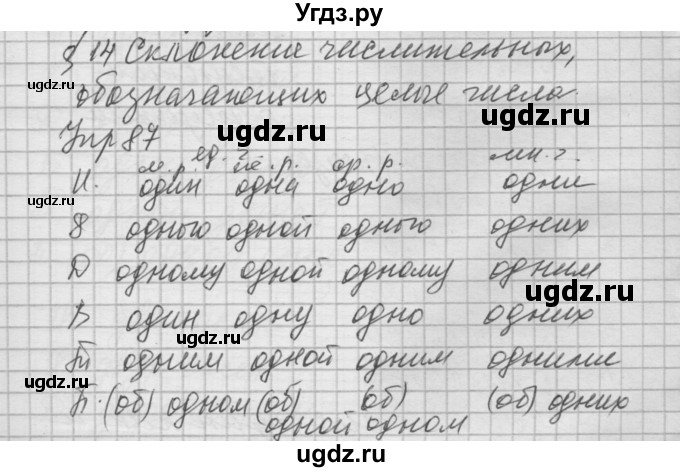 Угдз.ру
§ 14 Склонение числительных,
обозначающих целые числа.
Упр 87
ед. ч.
м. р. же. р. ср. р. мн. ч.
И. один одна одно одни
Р одного одной одного одних
Д одному одной одному одним
В один одну одно одних
Т одним одной одним одними
П. (об) одном (об) (об) (об) одних
одной одном
ugdz.ru
ugdz.ru
ugdz.ru
ugdz.ru
ugdz.ru
ugdz.ru
ugdz.ru
ugdz.ru
ugdz.ru
ugdz.ru